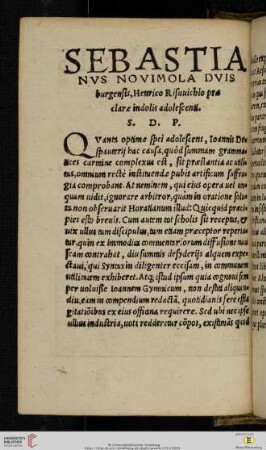 SEBASTIA
NVS NOVIMOLA DVIS
burgensis, Henrico Risuuichio præ
claræ indolis adolescenti.
S. D. P.
QVanti optimæ spei adolescens, Ioannis Des
pauterij hac causa, quòd summam gramma
tices carmine complexus est, sit præstantia ac utili
tas, omnium rectè instituendæ pubis artificum suffra
gia comprobant. At neminem, qui eius opera uel un
quam uidit, ignorare arbitror, quàm in oratione solu
ta non obseruarit Horatianum illud: Quicquid præci
pies esto breuis. Cum autem tot scholis sit receptus, et
uix ullus tum discipulus, tum etiam præceptor reperia
tur, quin ex immodica commentariorum diffusione nau
seam contrahat, diu summis desyderijs aliquem expe
ctaui, qui Syntaxin diligenter excisam, in communem
utilitatem exhiberet. Atq; istud ipsum quia cognoui sem
per uoluisse Ioannem Gymnicum, non destiti aliquan
diu, eam in compendium redactā, quotidianis fere effla
gitationibus ex eius officina requirere. Sed ubi nec ipse
ullius industria, uoti redderetur cōpos, existimās quod